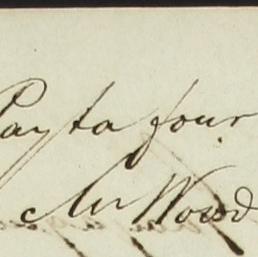 Pay to four
Mr Wood